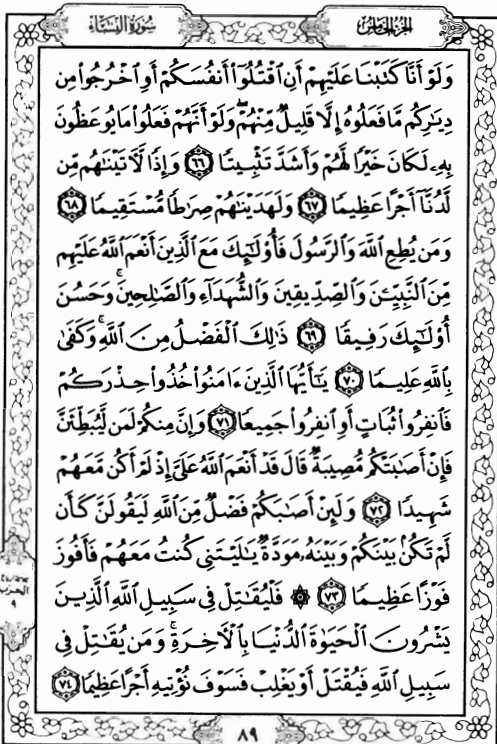 الجزء الخامس سورة النساء
وَلَوْ أَنَّا كَتَبْنَا عَلَيْهِمْ أَنِ ٱقْتُلُوٓا۟ أَنفُسَكُمْ أَوِ ٱخْرُجُوا۟ مِن
دِيَٰرِكُم مَّا فَعَلُوهُ إِلَّا قَلِيلٌ مِّنْهُمْ ۖ وَلَوْ أَنَّهُمْ فَعَلُوا۟ مَا يُوعَظُونَ
بِهِۦ لَكَانَ خَيْرًا لَّهُمْ وَأَشَدَّ تَثْبِيتًا ٦٦ وَإِذًا لَّءَاتَيْنَٰهُم مِّن
لَّدُنَّآ أَجْرًا عَظِيمًا ٦٧ وَلَهَدَيْنَٰهُمْ صِرَٰطًا مُّسْتَقِيمًا ٦٨
وَمَن يُطِعِ ٱللَّهَ وَٱلرَّسُولَ فَأُو۟لَٰٓئِكَ مَعَ ٱلَّذِينَ أَنْعَمَ ٱللَّهُ عَلَيْهِم
مِّنَ ٱلنَّبِيِّۦنَ وَٱلصِّدِّيقِينَ وَٱلشُّهَدَآءِ وَٱلصَّٰلِحِينَ ۚ وَحَسُنَ
أُو۟لَٰٓئِكَ رَفِيقًا ٦٩ ذَٰلِكَ ٱلْفَضْلُ مِنَ ٱللَّهِ ۚ وَكَفَىٰ
بِٱللَّهِ عَلِيمًا ٧٠ يَٰٓأَيُّهَا ٱلَّذِينَ ءَامَنُوا۟ خُذُوا۟ حِذْرَكُمْ
فَٱنفِرُوا۟ ثُبَاتٍ أَوِ ٱنفِرُوا۟ جَمِيعًا ٧١ وَإِنَّ مِنكُمْ لَمَن لَّيُبَطِّئَنَّ
فَإِنْ أَصَٰبَتْكُم مُّصِيبَةٌ قَالَ قَدْ أَنْعَمَ ٱللَّهُ عَلَىَّ إِذْ لَمْ أَكُن مَّعَهُمْ
شَهِيدًا ٧٢ وَلَئِنْ أَصَٰبَكُمْ فَضْلٌ مِّنَ ٱللَّهِ لَيَقُولَنَّ كَأَن
لَّمْ تَكُنۢ بَيْنَكُمْ وَبَيْنَهُۥ مَوَدَّةٌ يَٰلَيْتَنِى كُنتُ مَعَهُمْ فَأَفُوزَ
فَوْزًا عَظِيمًا ٧٣ ۞ فَلْيُقَٰتِلْ فِى سَبِيلِ ٱللَّهِ ٱلَّذِينَ
يَشْرُونَ ٱلْحَيَوٰةَ ٱلدُّنْيَا بِٱلْءَاخِرَةِ ۚ وَمَن يُقَٰتِلْ فِى
سَبِيلِ ٱللَّهِ فَيُقْتَلْ أَوْ يَغْلِبْ فَسَوْفَ نُؤْتِيهِ أَجْرًا عَظِيمًا ٧٤
الحزب
٩
٨٩